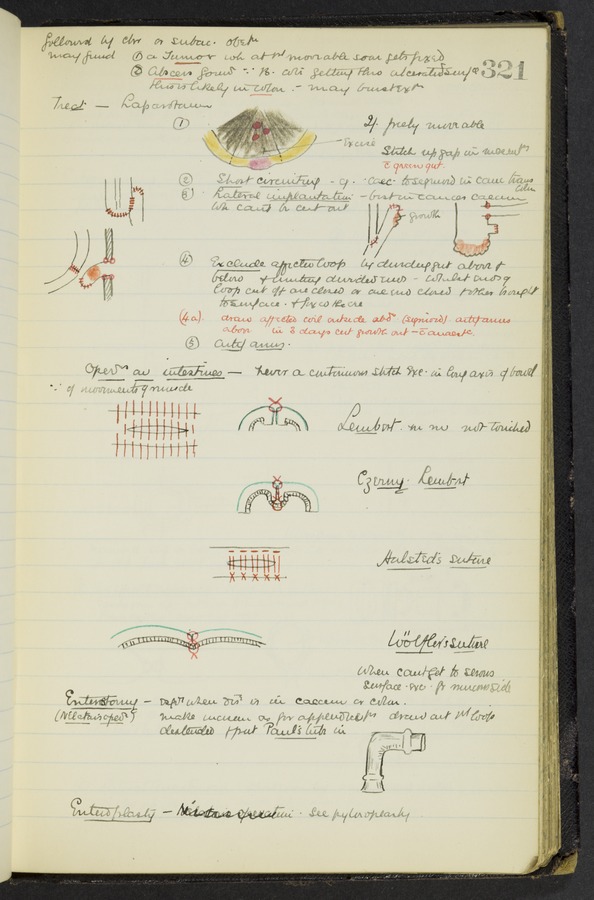 followed by chr or subac. obstn
may find ① a Tumor wh at 1st movable soon gets fixed
② Abscess formd ∵ B. coli getting thro ulcerated surface
this is likely in colon — may burst extly
321
Treat — Laparotomy
①
Excise
If freely movable
Stitch up gap in
c̄ green gut.
② Short circuiting - eg. caec. to sigmoid in canc trans colon
③ Lateral implantation - best in cancer caecum
wh cant be cut out
growth
④ Exclude affected loop by dividing gut above &
below & uniting divided ends -
loop cut off are closed or one end closed & other brought
to surface & fixed there
(4a). draw affected coil outside abd (sigmoid) artif anus
above in 3 days cut growth out - c̄ anaesth.
⑤ artif anus.
Opens on intestines — never a continuous stitch exc. in long axis of bowel
∵ of movements of muscle
Lembert. m m not touched
Czerny. Lembert
Halsted's suture
Wölfler's suture
When cant get to serous
surface exc. fr mucous side
Enterotomy — when in caecum or colon.
(Nélaton's opern) make incision as for appendix draw out 1st loop
distended & put Paul's tube in
Enteroplasty — see pyloroplasty